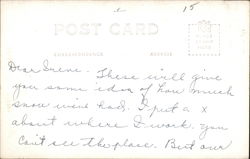 15
POST CARD
CORRESPONDENCE
ADDRESS
Dear Irene - These will give
you some idea of how much
snow we've had. I put a x
about where I work. you
can't see the place. But our